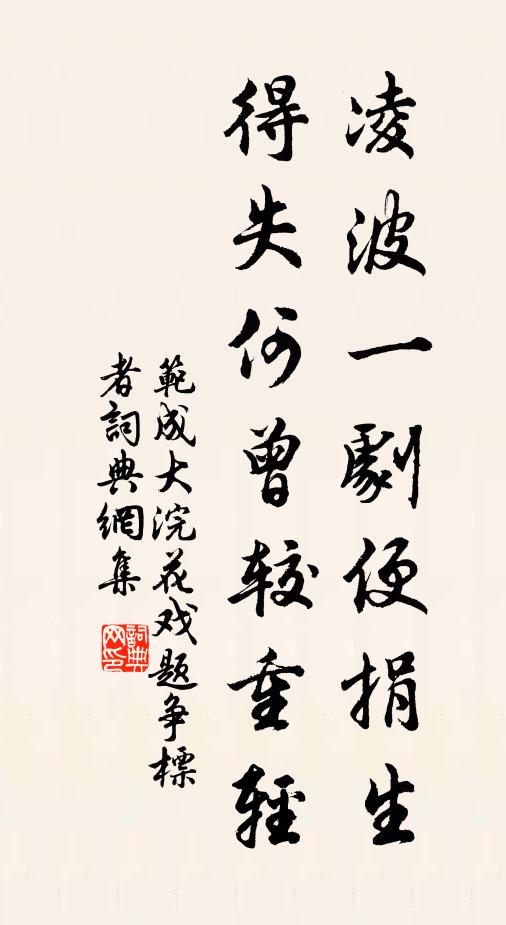 凌波一劇便捐生
得失何曾較重輕
範成大浣花戏题争標
者詞典網集
詞典
网印